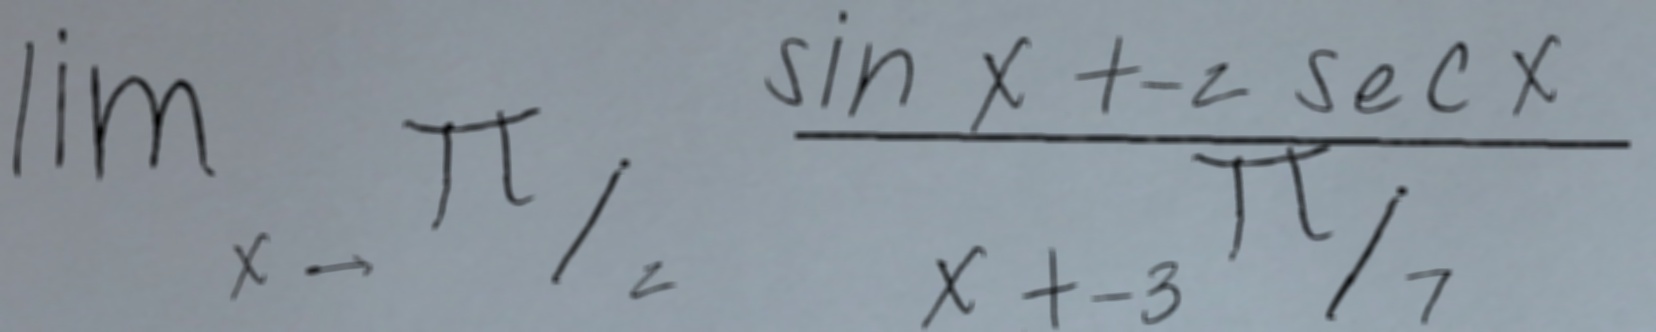 lim x → π/2 (sin x + -2 sec x)/(x + -3π/7)